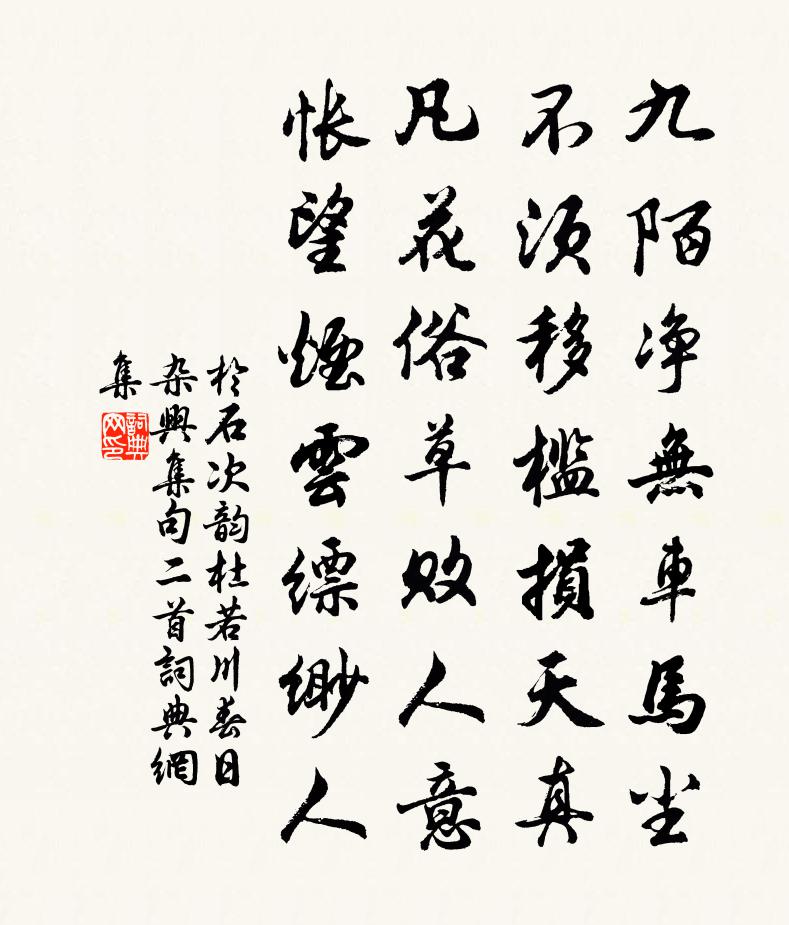 九陌净無車馬尘
不須移檻損天真
凡花俗草败人意
悵望煙雲縹緲人
於石次韵杜若川春日
杂興集句二首詞典網
集
詞典
网印